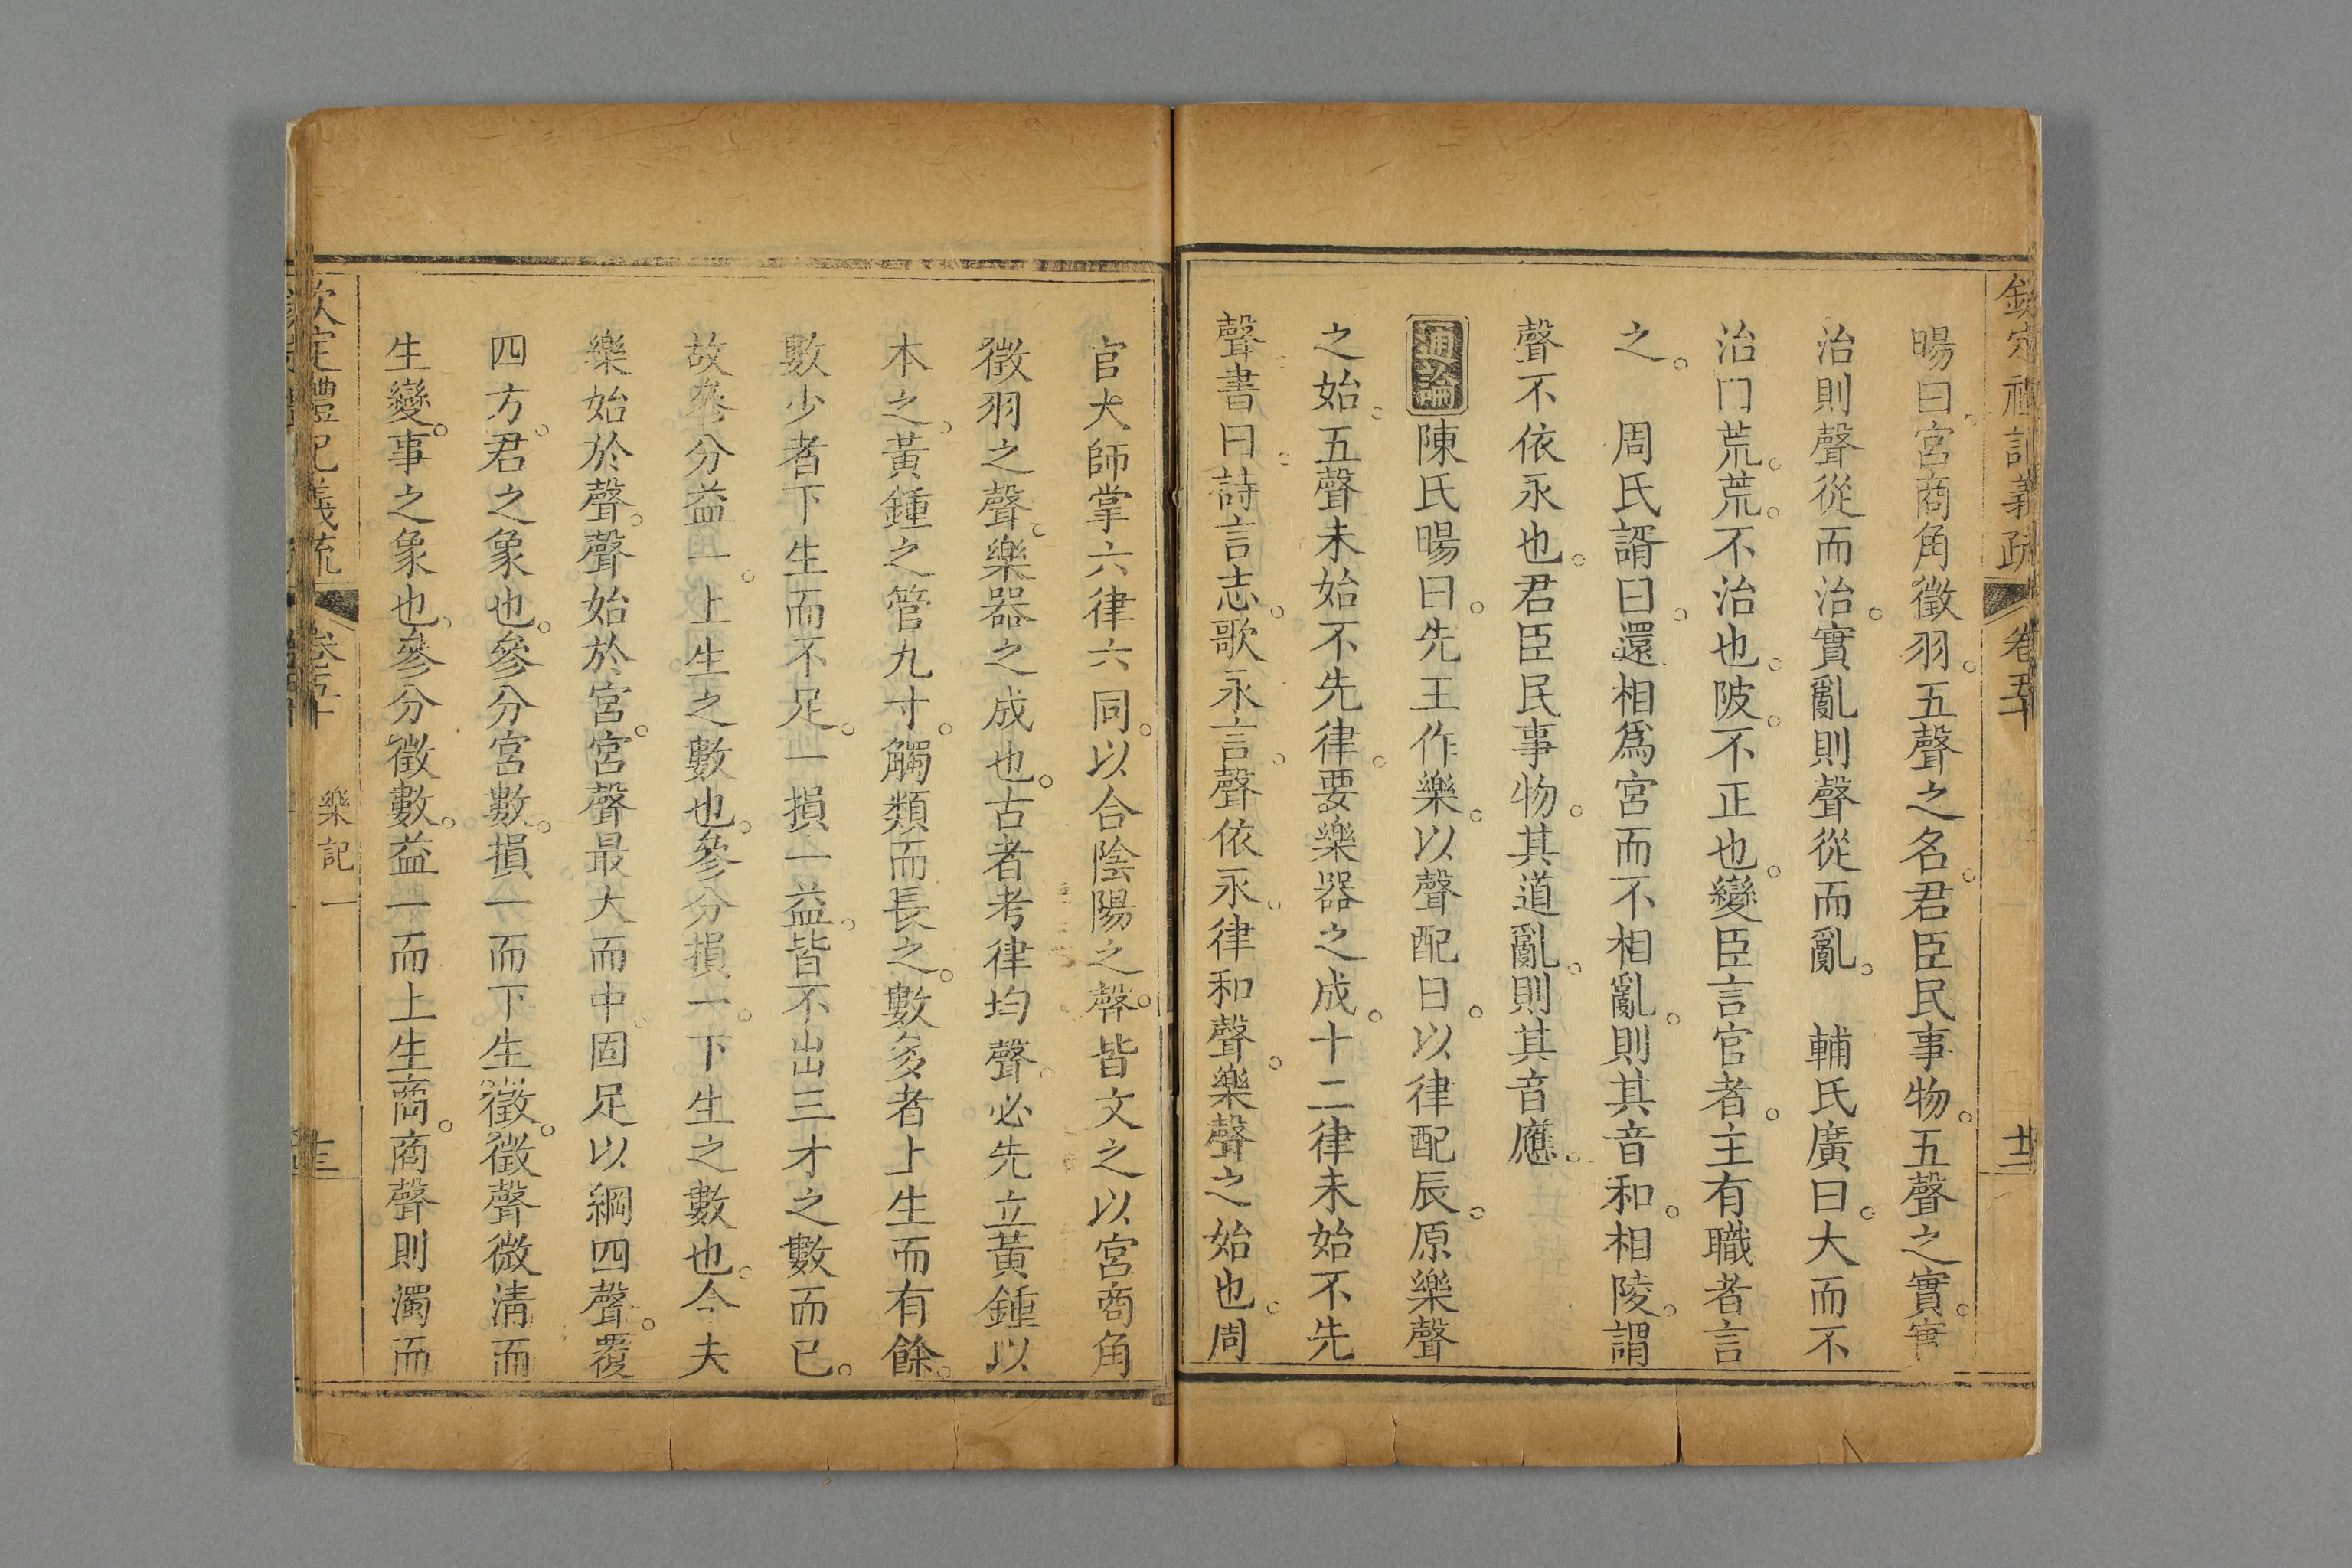 欽定禮記義疏 卷五十 十二
暘曰宮商角徵羽。五聲之名。君臣民事物。五聲之實。實
治則聲從而治。實亂則聲從而亂。 輔氏廣曰。大而不
治門荒。荒。不治也。陂。不正也。變臣言官者。主有職者言
之。 周氏諝曰。還相爲宮而不相亂。則其音和。相陵。謂
聲不依永也。君臣民事物。其道亂。則其音應。
通論 陳氏暘曰。先王作樂。以聲配日。以律配辰。原樂聲
之始。五聲未始不先律。要樂器之成。十二律未始不先
聲。書曰。詩言志。歌永言。聲依永。律和聲。樂聲之始也。周
官大師掌六律六同。以合陰陽之聲。皆文之以宮商角
徵羽之聲。樂器之成也。古者考律均聲。必先立黃鍾以
本之。黃鍾之管九寸。觸類而長之。數多者上生而有餘。
數少者下生而不足。一損一益。皆不出三才之數而已。
故叅分益一。上生之數也。參分損一。下生之數也。今夫
樂始於聲。聲始於宮。宮聲最大而中。固足以綱四聲。覆
四方。君之象也。參分宮數。損一而下生徵。徵聲微清而
生變。事之象也。參分徵數。益一而上生商。商聲則濁而
欽定禮記義疏 卷五十 樂記一 十三